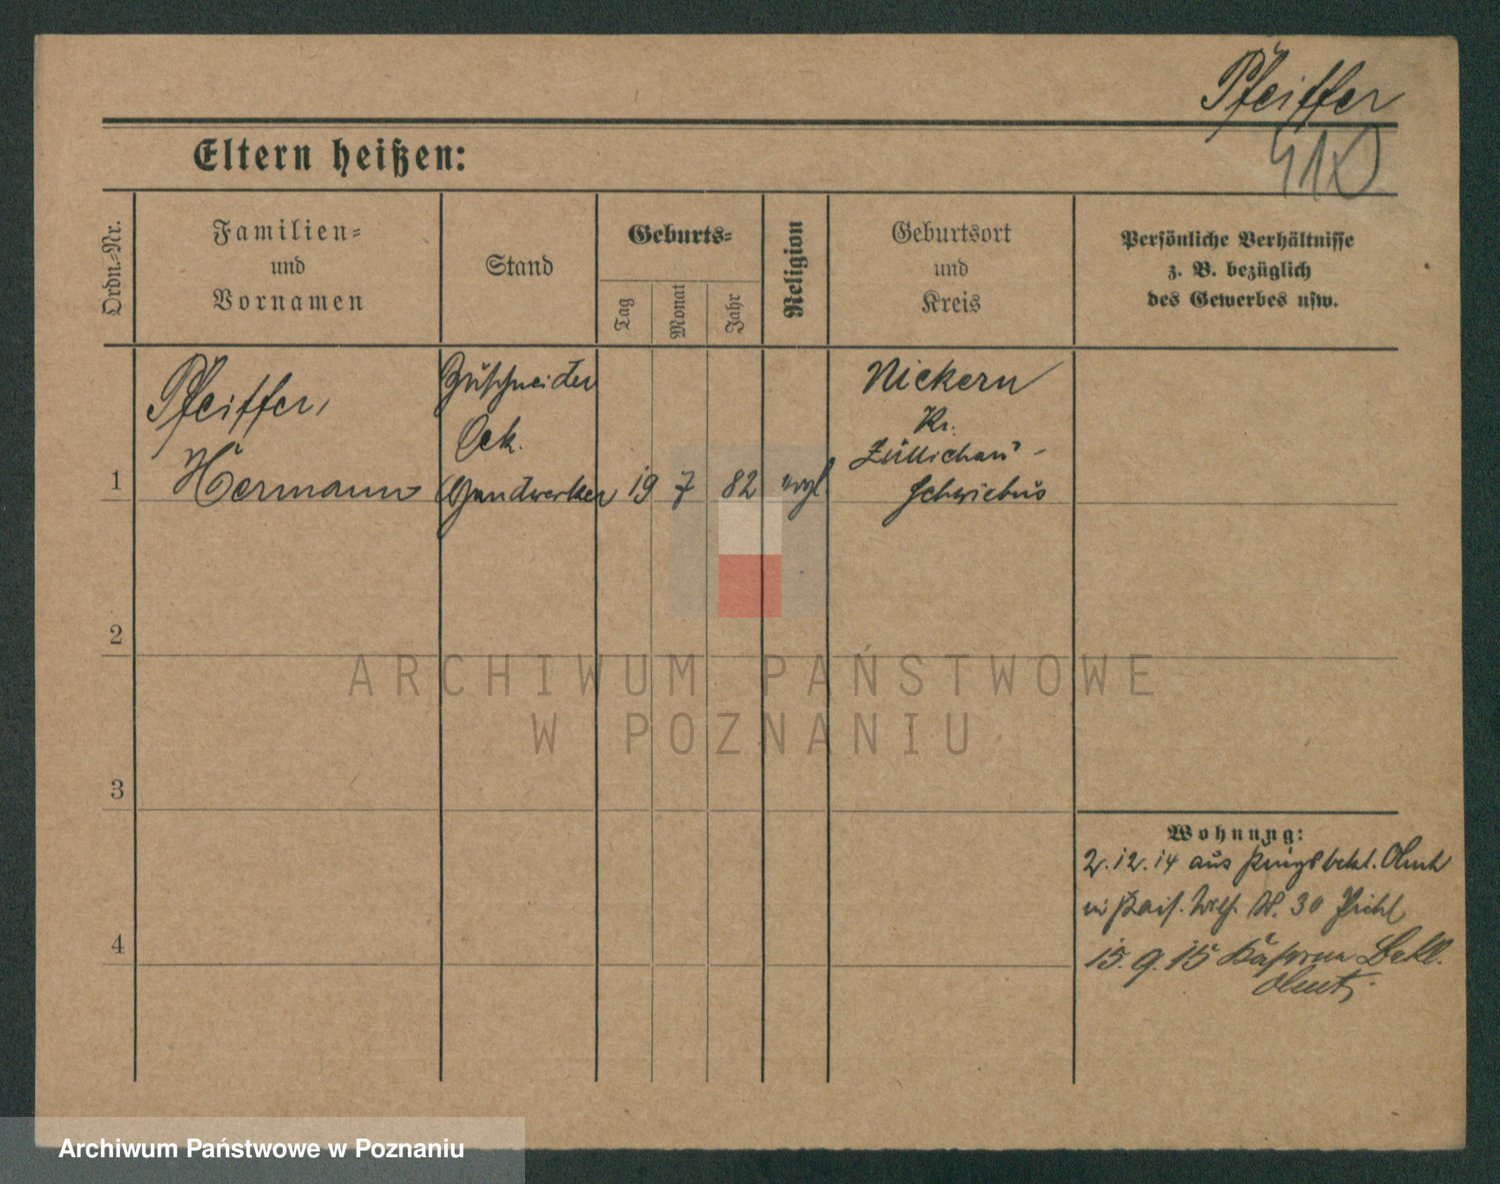 Pfeiffer
410
Eltern heißen:
Ordn.-Nr.
Familien-
und
Vornamen
Stand
Geburts-
Tag
Monat
Jahr
Religion
Geburtsort
und
Kreis
Persönliche Verhältnisse
z. B. bezüglich
des Gewerbes usw.
1
Pfeiffer,
Hermann
Zuschneider
Oek.
Handwerker
19
7
82
evgl.
Nickern
Kr.
Züllichau-
Schwiebus
2
3
4
Wohnung:
2.12.14 aus
Kais. Wilh. 30
15.9.15 Kaserne Bekl.
ARCHIWUM PAŃSTWOWE
W POZNANIU
Archiwum Państwowe w Poznaniu